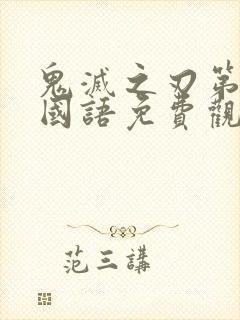 鬼滅之刃第
國語免費觀
范三講